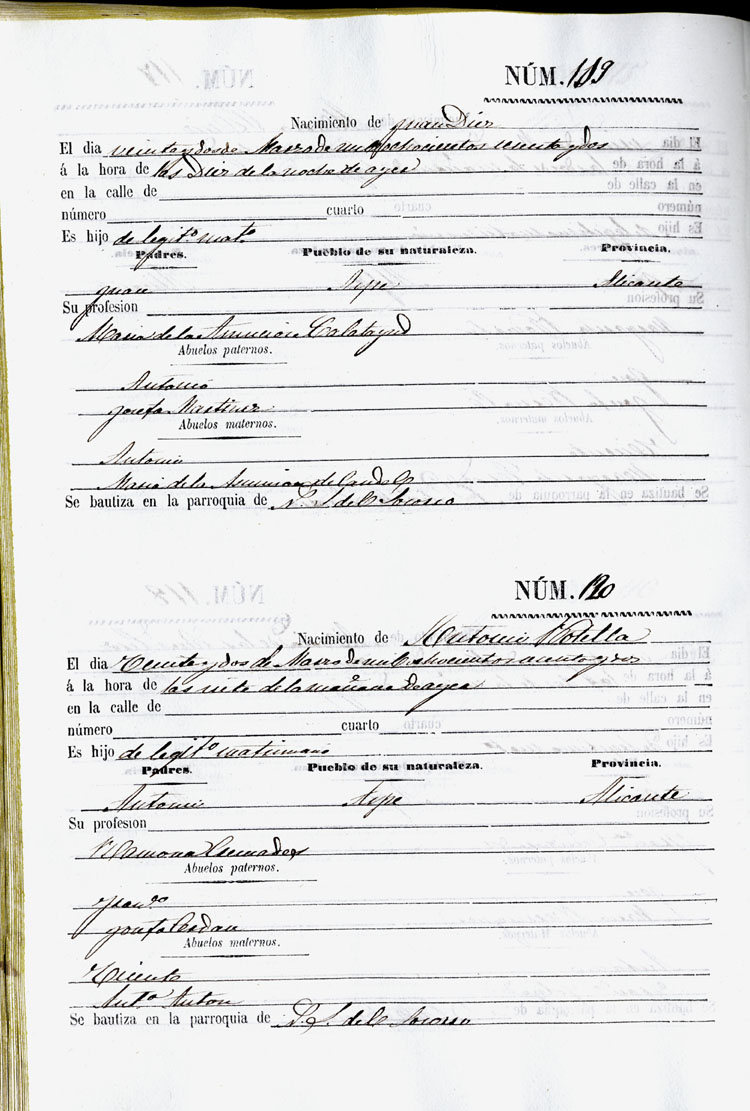 NÚM. 119
Nacimiento de Juan Diez
El dia veinte y dos de Marzo de mil ochocientos y dos
á la hora de las Diez de la noche de ayer
en la calle de
número cuarto
Es hijo de legit.º mat.º
Padres. Pueblo de su naturaleza. Provincia.
Juan Aspe Alicante
Su profesion
Maria de la Calatayud
Abuelos paternos.
Antonio
Josefa Martinez
Abuelos maternos.
Antonio
Maria de la
Se bautiza en la parroquia de N. S. del Socorro
NÚM. 120
Nacimiento de Antonio Botella
El dia Veinte y dos de Marzo de mil ochocientos y dos
á la hora de las siete de la mañana de ayer
en la calle de
número cuarto
Es hijo de legit.º matrimonio
Padres. Pueblo de su naturaleza. Provincia.
Antonio Aspe Alicante
Su profesion
Ramona
Abuelos paternos.
Fran.co
Josefa Cerdan
Abuelos maternos.
Vicente
Ant.ª Anton
Se bautiza en la parroquia de N. S. del Socorro